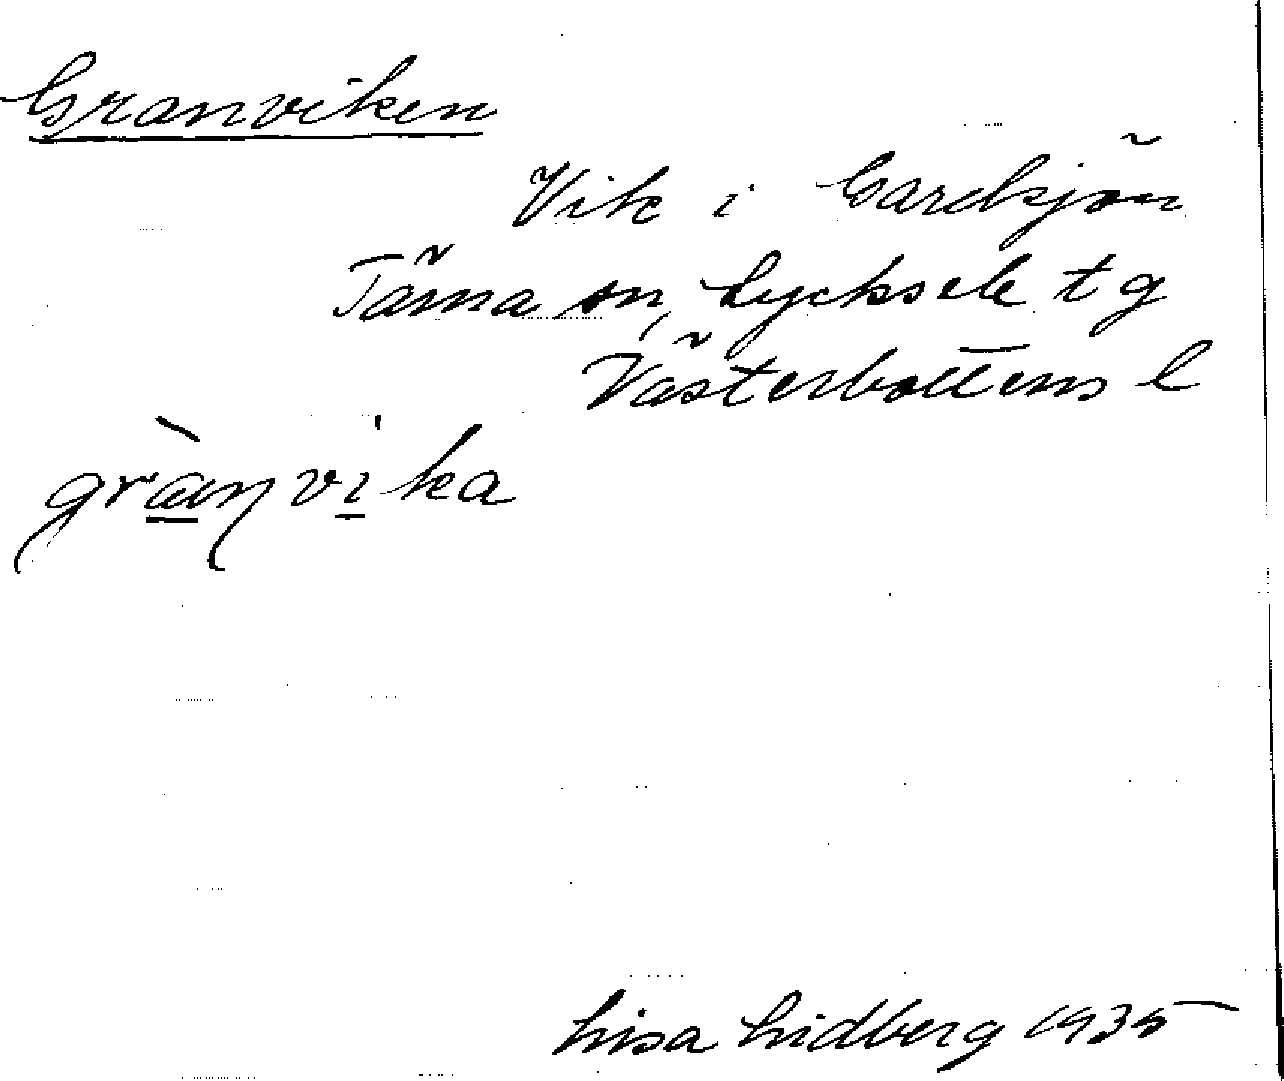 Granviken
Vik i Gardsjön
Tärna sn, Lycksele tg
Västerbottens l
grànvi'ka
Lisa Lidberg 1935